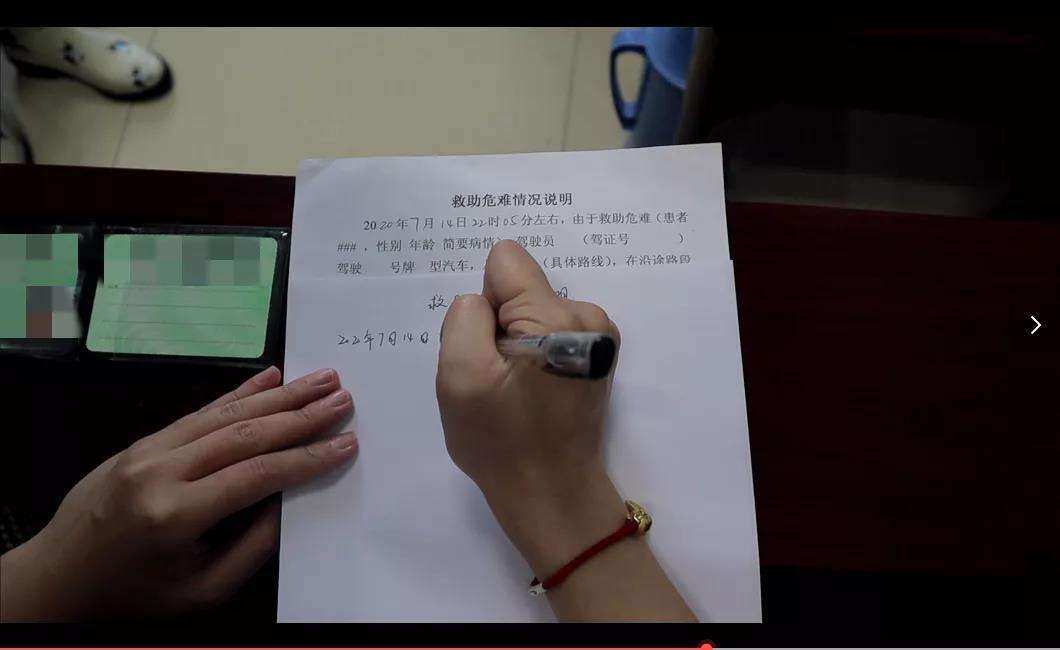 救助危难情况说明
2020年7月14日22时05分左右，由于救助危难（患者
###，性别 年龄 简要病情） 驾驶员 （驾证号 ）
驾驶 号牌 型汽车， （具体路线），在沿途路段
救
2020年7月14日